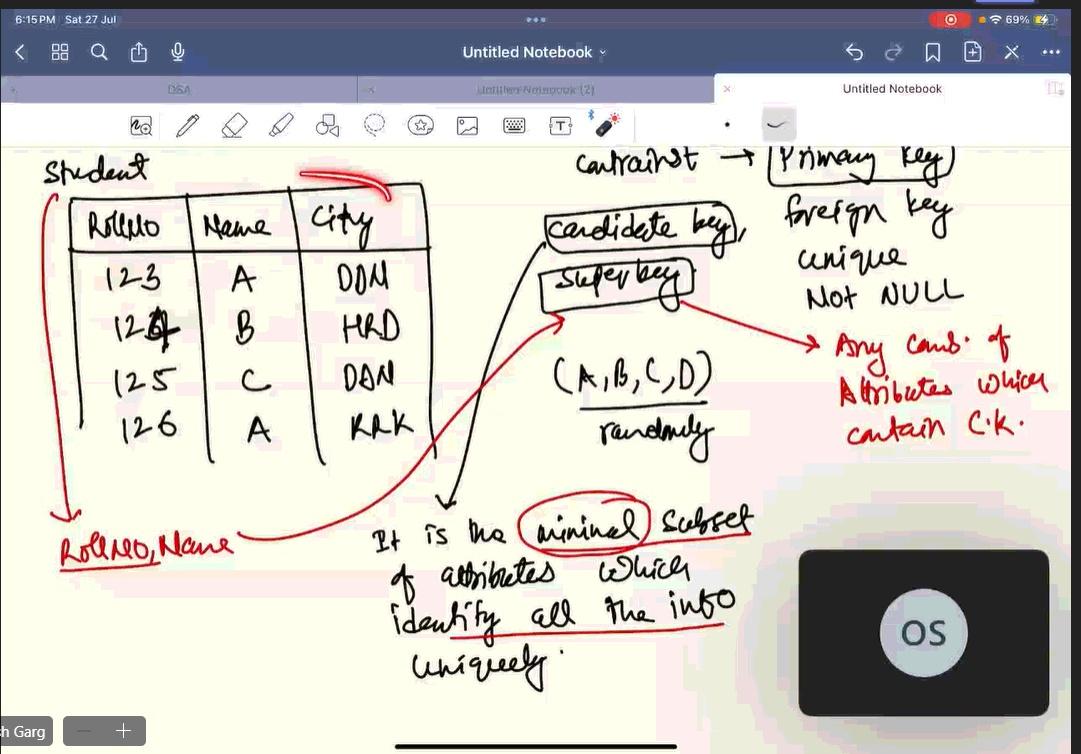 6:15 PM Sat 27 Jul
69%
Untitled Notebook
DSA
Untitled Notebook (2)
Untitled Notebook
Student
RollNo Name City
123 A DDN
124 B HRD
125 C DDN
126 A RRK
RollNo, Name
contrainst → Primary key
foreign key
unique
Not NULL
candidate key,
super key
(A, B, C, D)
randomly
Any comb. of
Attributes which
contain C.K.
It is the minimal subset
of attributes which
identify all the info
uniquely.
OS
h Garg